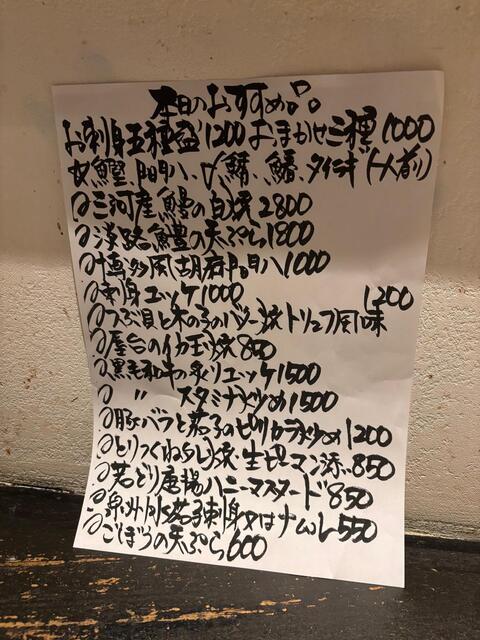 本日のおすすめ品。
お刺身五種盛1200 おまかせ三種1000
鰹、関門八、〆鯖、鱸、タイラギ (一人前)
三河産鰻の白焼2800
淡路鱧の天ぷら1800
博多風胡麻門八1000
刺身ユッケ1000
つぶ貝と木の子のバター焼トリュフ風味 1200
屋台のイカ玉焼850
黒毛和牛の炙りユッケ1500
〃 スタミナ炒め1500
豚バラと茄子のピリカラ炒め1200
とりつくねタレ焼 生ピーマン添…850
若どり唐揚ハニーマスタード850
泉州水茄子刺身又はナムル550
ごぼうの天ぷら600